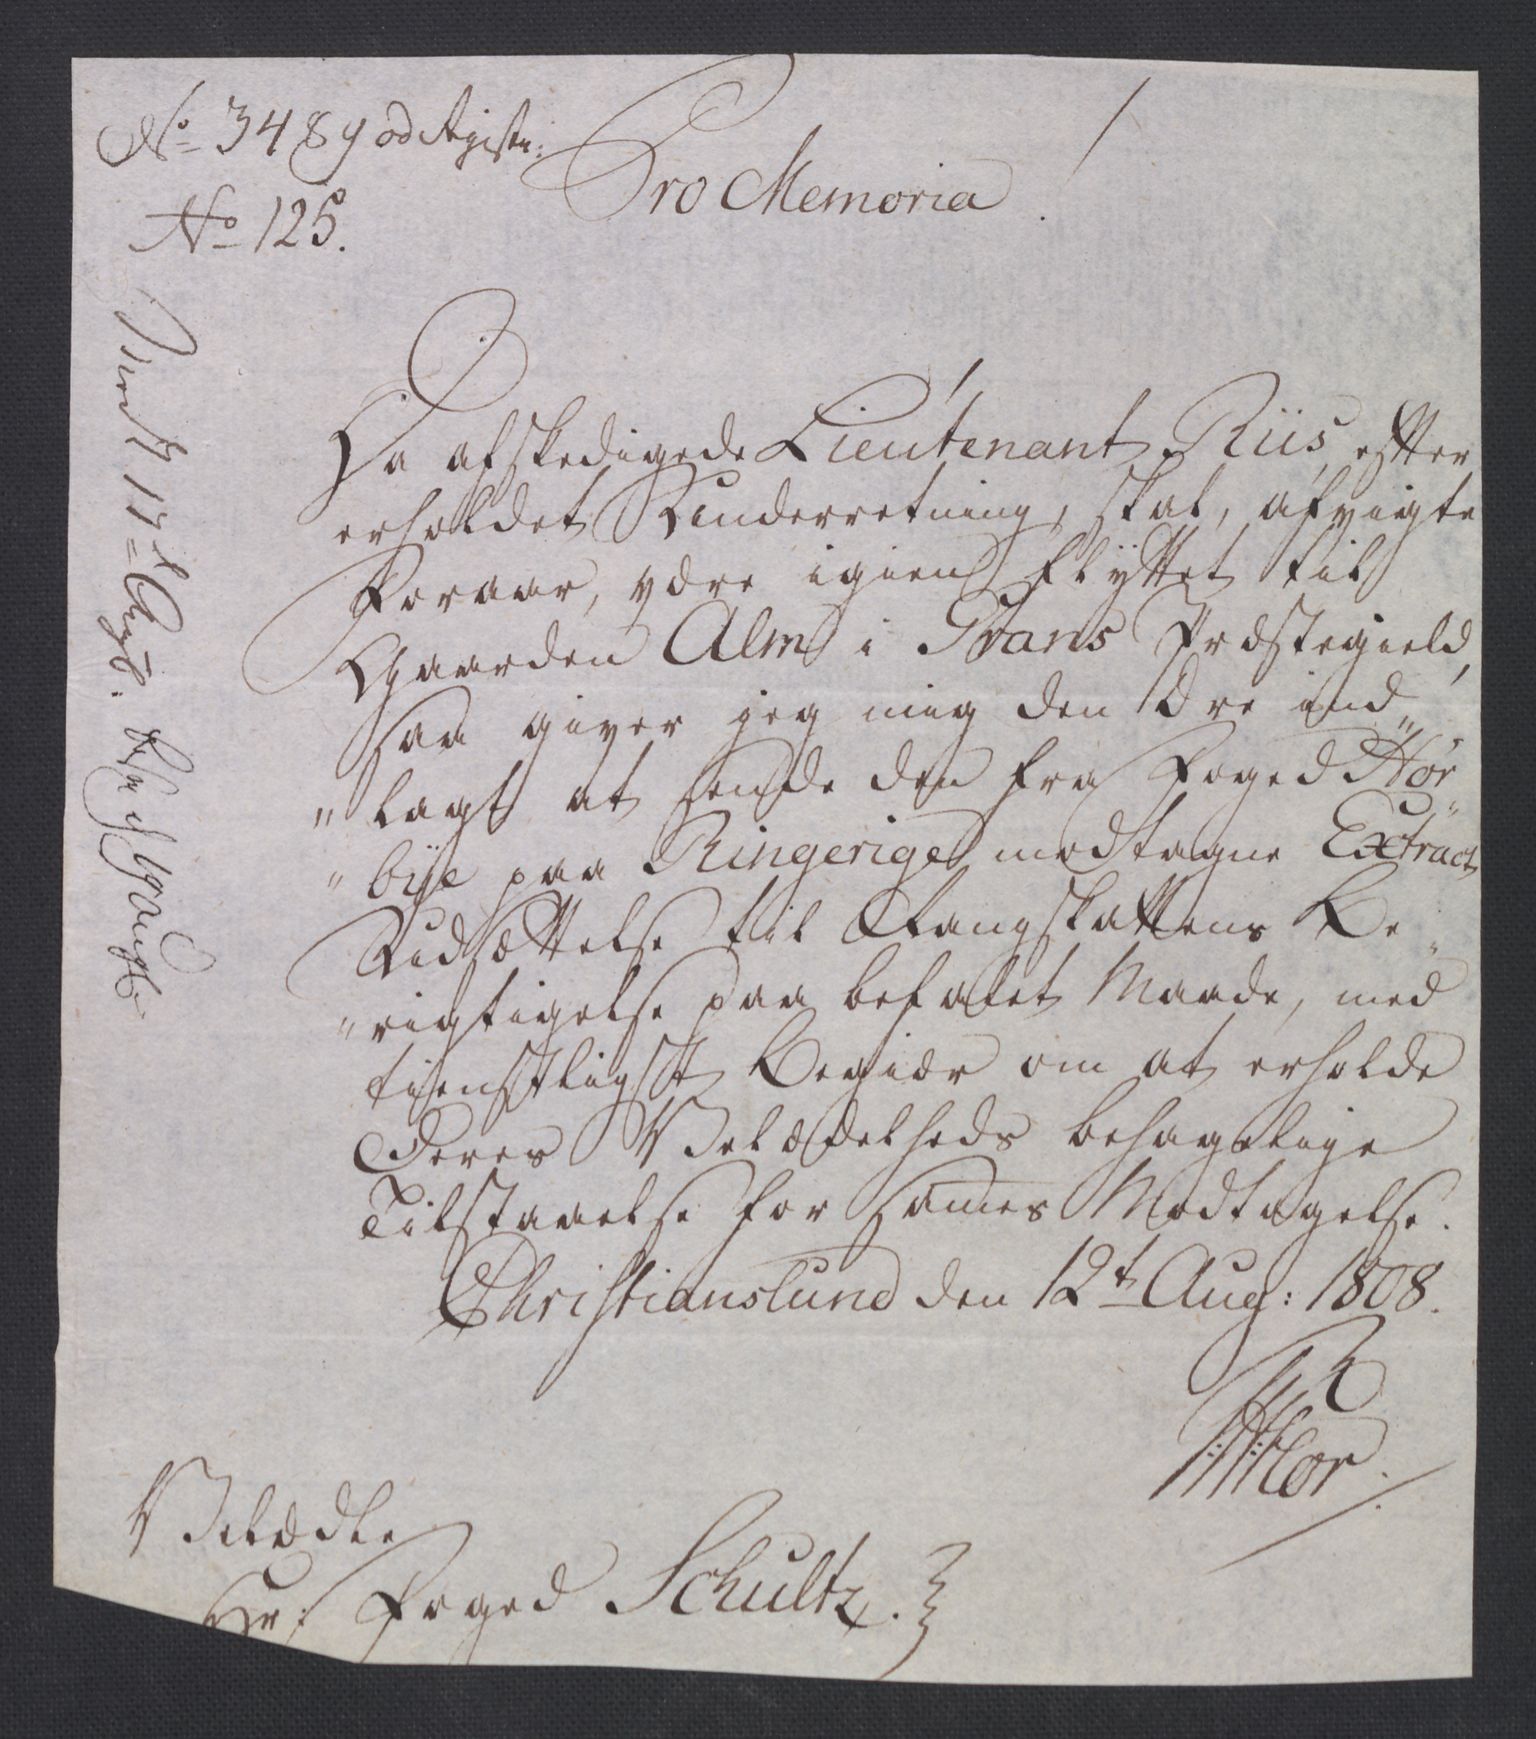 No 3489
No 125.
Pro Memoria
Da afskedigede Lieutenant Riis, efter
erholdet Underretning, skal, afvigte
Foraar, være igien flyttet til
Gaarden Alm i Grans Præstegield,
saa giver jeg mig den Ære ind„
„lagt at sende den fra Foged Hør„
„bye paa Ringerige modtagne Extract
Udsættelse til Rangskattens Be„
„rigtigelse paa befalet Maade, med
tienstligst Begiær om at erholde
Deres Velædelheds behagelige
Tilstaaelse for sammes Modtagelse.
Christianslund den 12t Aug: 1808.
Velædle
Hr: Foged Schultz.